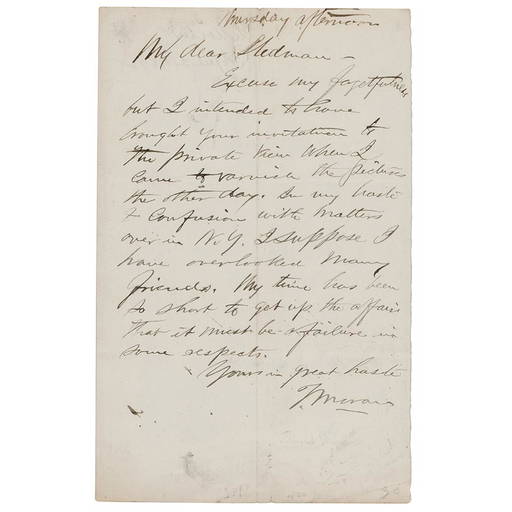 Thursday afternoon
My dear Stedman -
Excuse my forgetfulness
but I intended to have
brought your invitation to
the private view when I
came to varnish the pictures
the other day. In my haste
& confusion with matters
over in N.Y. I suppose I
have overlooked many
friends. My time has been
so short to get up the affair
that it must be a failure in
some respects.
Yours in great haste
T. Moran